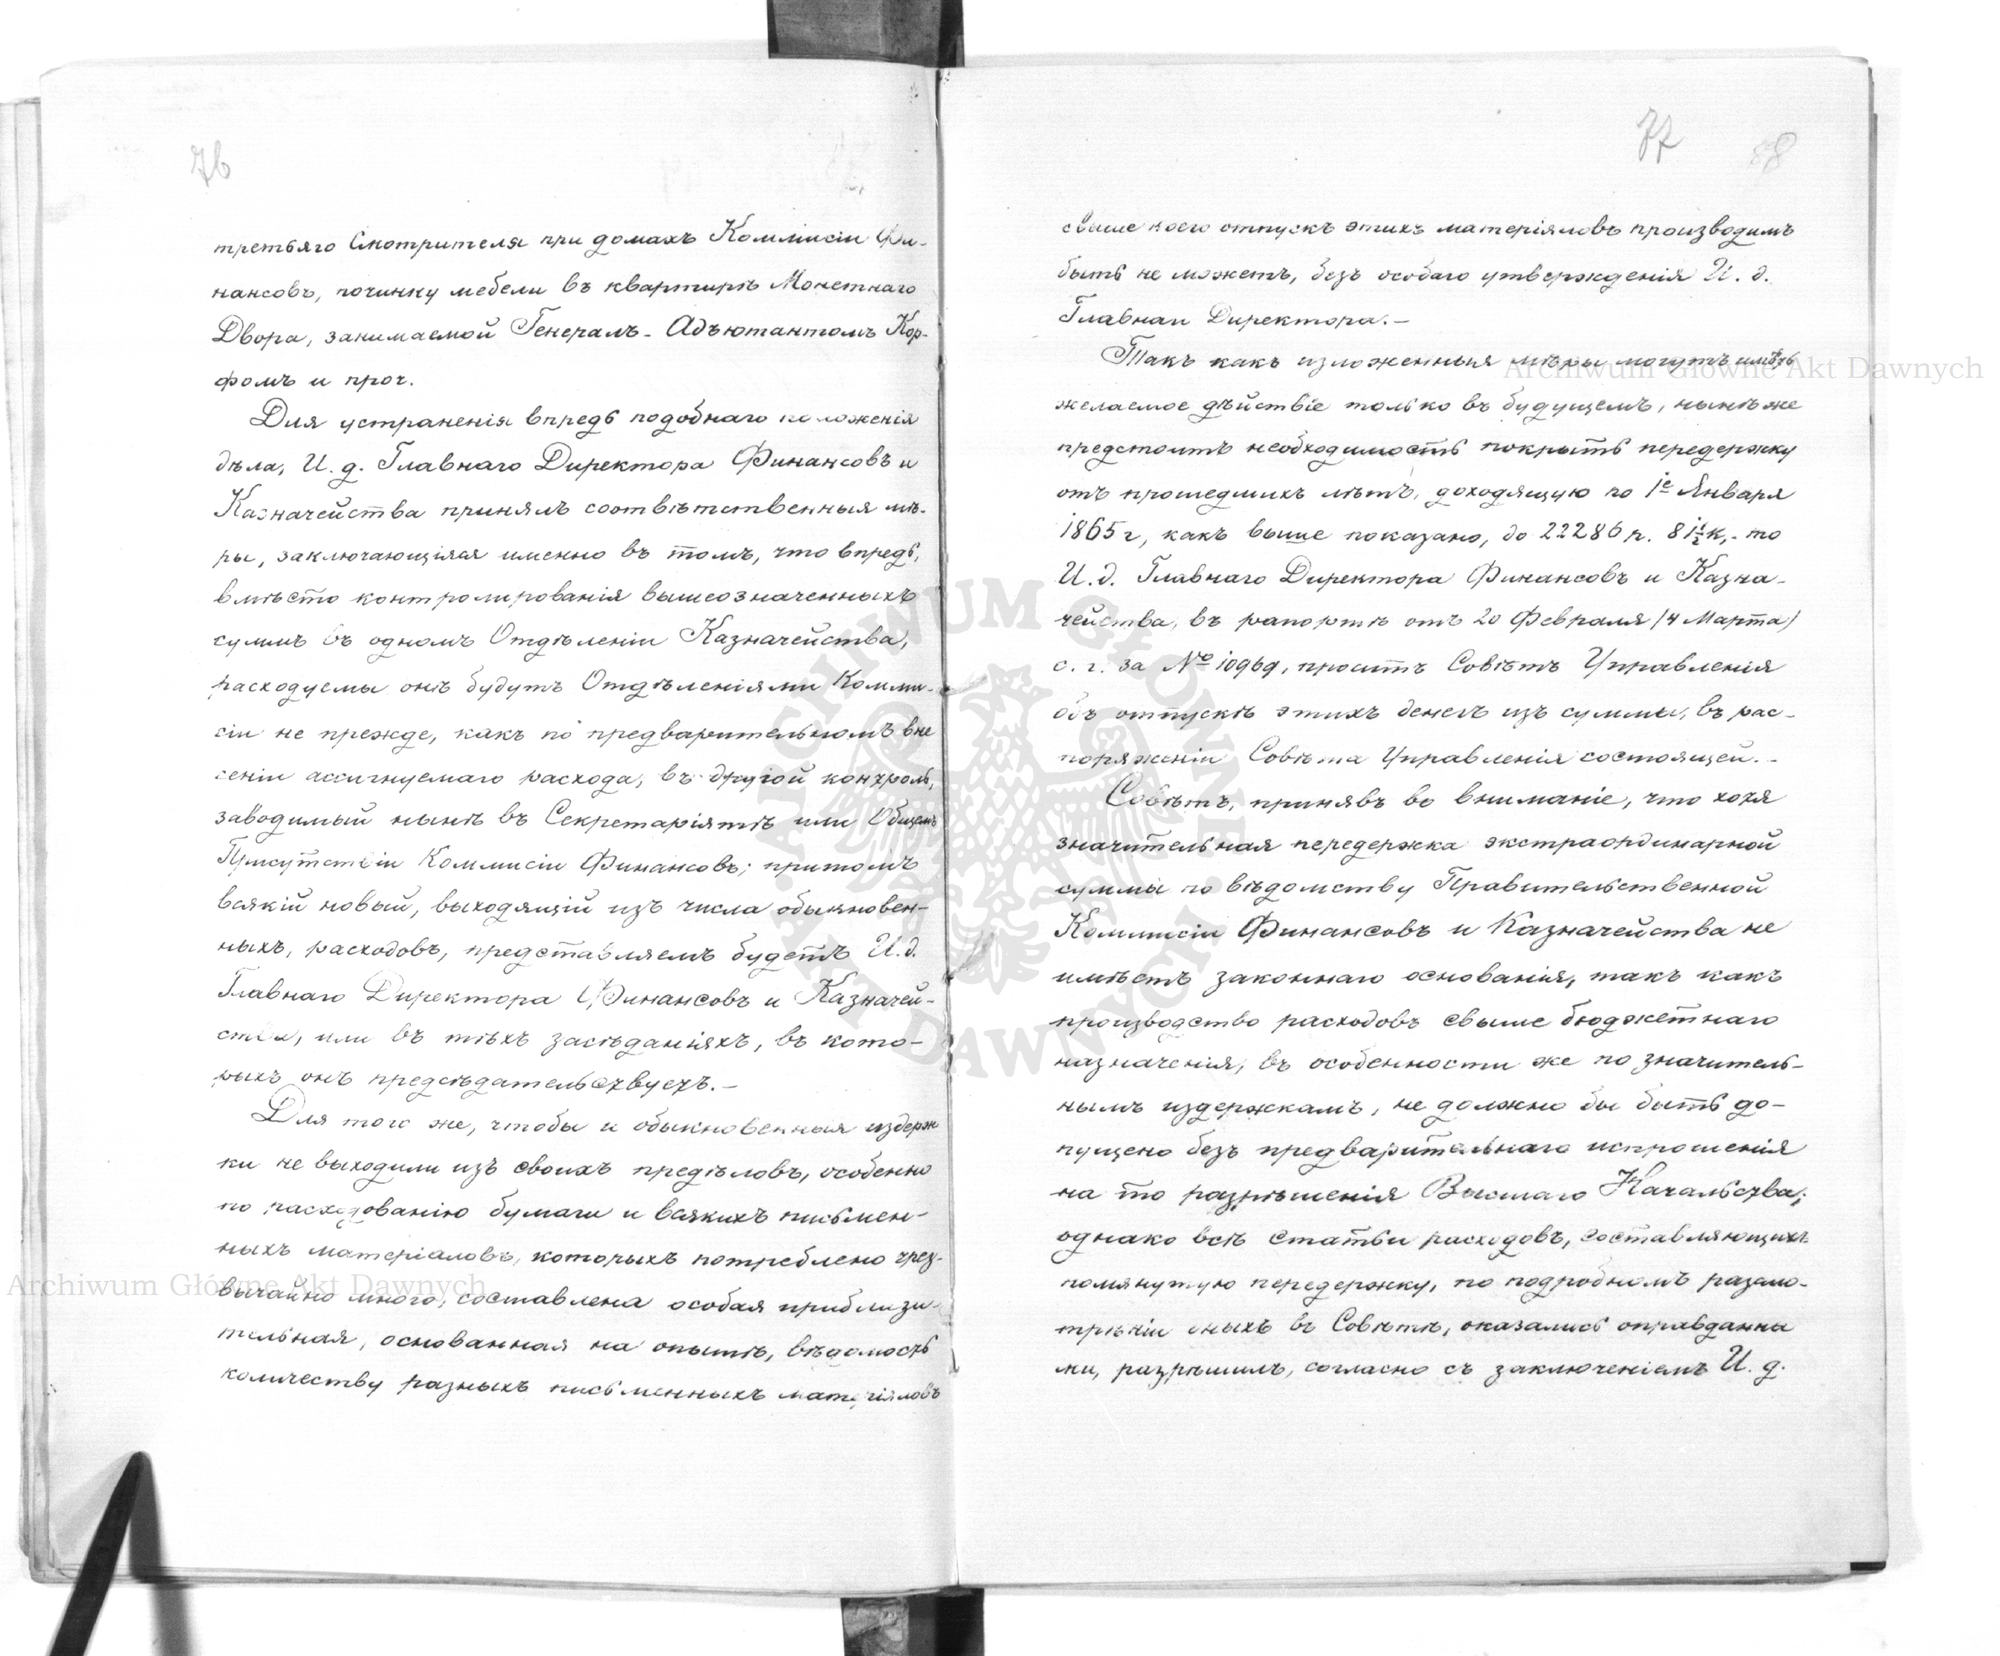 76
третьяго Смотрителя при домахъ Коммисіи Фи-
нансовъ, починку мебели въ квартирѣ Монетнаго
Двора, занимаемой Генералъ-Адъютантомъ Кор-
фомъ и проч.
Для устраненія впредь подобнаго положенія
дѣла, И. д. Главнаго Директора Финансовъ и
Казначейства принялъ соотвѣтственныя мѣ-
ры, заключающіяся именно въ томъ, что впредь,
вмѣсто контролированія вышеозначенныхъ
суммъ въ одномъ Отдѣленіи Казначейства,
расходуемы онѣ будутъ Отдѣленіями Комми-
сіи не прежде, какъ по предварительномъ вне
сеніи ассигнуемаго расхода, въ другой контроль,
заводимый нынѣ въ Секретаріятѣ или Общемъ
Присутствіи Коммисіи Финансовъ; притомъ
всякій новый, выходящій изъ числа обыкновен-
ныхъ, расходовъ, представляемъ будетъ И. д.
Главнаго Директора Финансовъ и Казначей-
ства, или въ тѣхъ засѣданіяхъ, въ кото-
рыхъ онъ предсѣдательствуетъ.—
Для того же, чтобы и обыкновенныя издерж
ки не выходили изъ своихъ предѣловъ, особенно
по расходованію бумаги и всякихъ письмен-
ныхъ матеріаловъ, которыхъ потреблено чрез-
вычайно много, составлена особая приблизи-
тельная, основанная на опытѣ, вѣдомость
количеству разныхъ письменныхъ матеріяловъ
77 88
свыше коего отпускъ этихъ матеріяловъ производимъ
быть не можетъ, безъ особаго утвержденія И. д.
Главнаи Директора.—
Такъ какъ изложенныя мѣры могутъ имѣть
желаемое дѣйствіе только въ будущемъ, нынѣ же
предстоитъ необходимость покрыть передержку
отъ прошедшихъ лѣтъ, доходящую по 1е Января
1865 г, какъ выше показано, до 22286 р. 81½ к,- то
И. д. Главнаго Директора Финансовъ и Казна-
чейства, въ рапортѣ отъ 20 Февраля /4 Марта/
с. г. за № 10969, проситъ Совѣтъ Управленія
объ отпускѣ этихъ денегъ изъ суммы, въ рас-
поряженіи Совѣта Управленія состоящей.-
Совѣтъ, принявъ во вниманіе, что хотя
значительная передержка экстраординарной
суммы по вѣдомству Правительственной
Коммисіи Финансовъ и Казначейства не
имѣетъ законнаго основанія, такъ какъ
производство расходовъ свыше бюджетнаго
назначенія, въ особенности же по значитель-
нымъ издержкамъ, не должно бы быть до-
пущено безъ предварительнаго испрошенія
на то разрѣшенія Высшаго Начальства;
однако всѣ статьи расходовъ, составляющихъ
помянутую передержку, по подробномъ разсмо-
трѣніи оныхъ въ Совѣтѣ, оказались оправданны
ми, разрѣшилъ, согласно съ заключеніемъ И. д.
Archiwum Główne Akt Dawnych
Archiwum Główne Akt Dawnych
ARCHIWUM GŁÓWNE AKT DAWNYCH